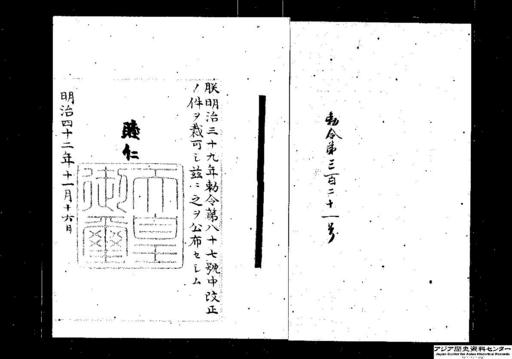 勅令第三百二十一号
朕明治三十九年勅令第八十七號中改正
ノ件ヲ裁可シ茲ニ之ヲ公布セシム
睦仁
天皇御璽
明治四十二年十一月十六日
アジア歴史資料センター
Japan Center for Asian Historical Records